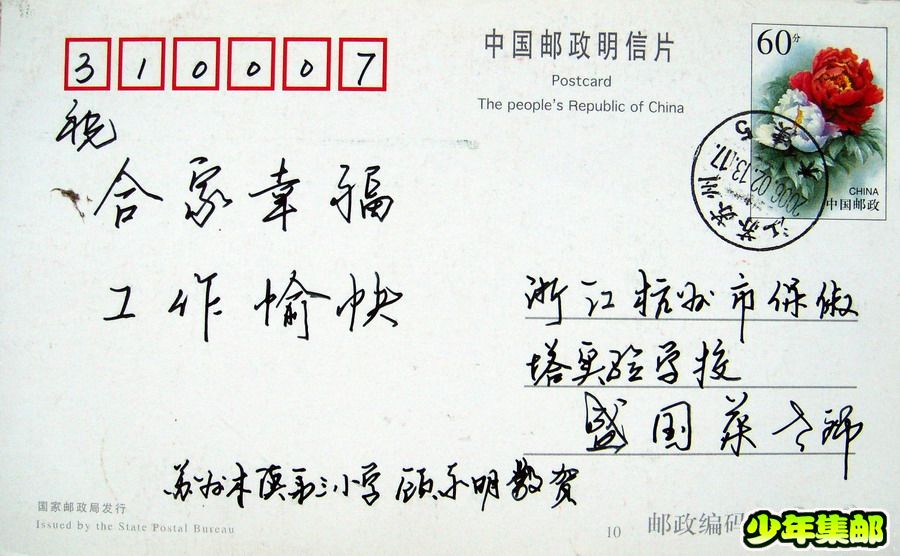 310007
中国邮政明信片
Postcard
The people's Republic of China
60分
CHINA
中国邮政
江苏苏州
2006.02.13.17
木渎
祝
合家幸福
工作愉快
浙江杭州市保俶
塔实验学校
盛国荣老师
苏州木渎第三小学 顾永明敬贺
国家邮政局发行
Issued by the State Postal Bureau
10
邮政编码
少年集邮